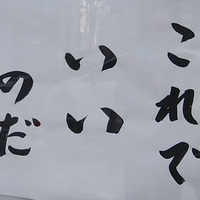 これで
いい
のだ